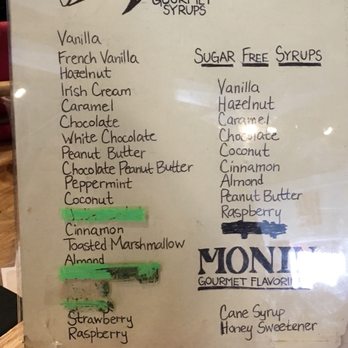 GOURMET
SYRUPS
Vanilla
French Vanilla
Hazelnut
Irish Cream
Caramel
Chocolate
White Chocolate
Peanut Butter
Chocolate Peanut Butter
Peppermint
Coconut
Cinnamon
Toasted Marshmallow
Almond
Strawberry
Raspberry
SUGAR FREE SYRUPS
Vanilla
Hazelnut
Caramel
Chocolate
Coconut
Cinnamon
Almond
Peanut Butter
Raspberry
MONIN
GOURMET FLAVORING
Cane Syrup
Honey Sweetener